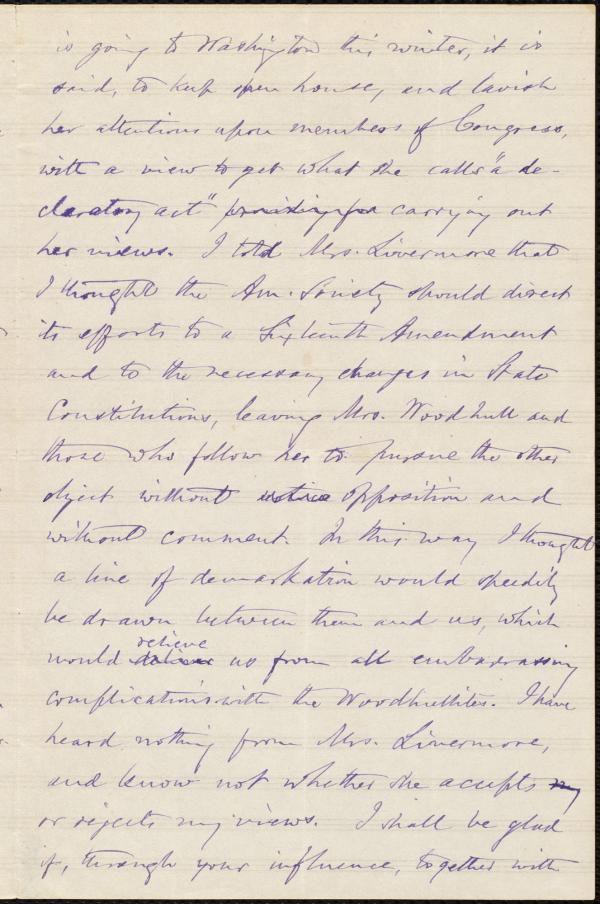 is going to Washington this winter, it is
said, to keep open house, and lavish
her attentions upon members of Congress,
with a view to get what she calls "a de-
claratory act" providing for carrying out
her views. I told Mrs. Livermore that
I thought the Am. Society should direct
its efforts to a Sixteenth Amendment
and to the necessary changes in State
Constitutions, leaving Mrs. Woodhull and
those who follow her to pursue the other
object without notice opposition and
without comment. In this way I thought
a line of demarkation would speedily
be drawn between them and us, which
relieve
would us from all embarrassing
complications with the Woodhullites. I have
heard nothing from Mrs. Livermore,
and know not whether she accepts my
or rejects my views. I shall be glad
if, through your influence, together with